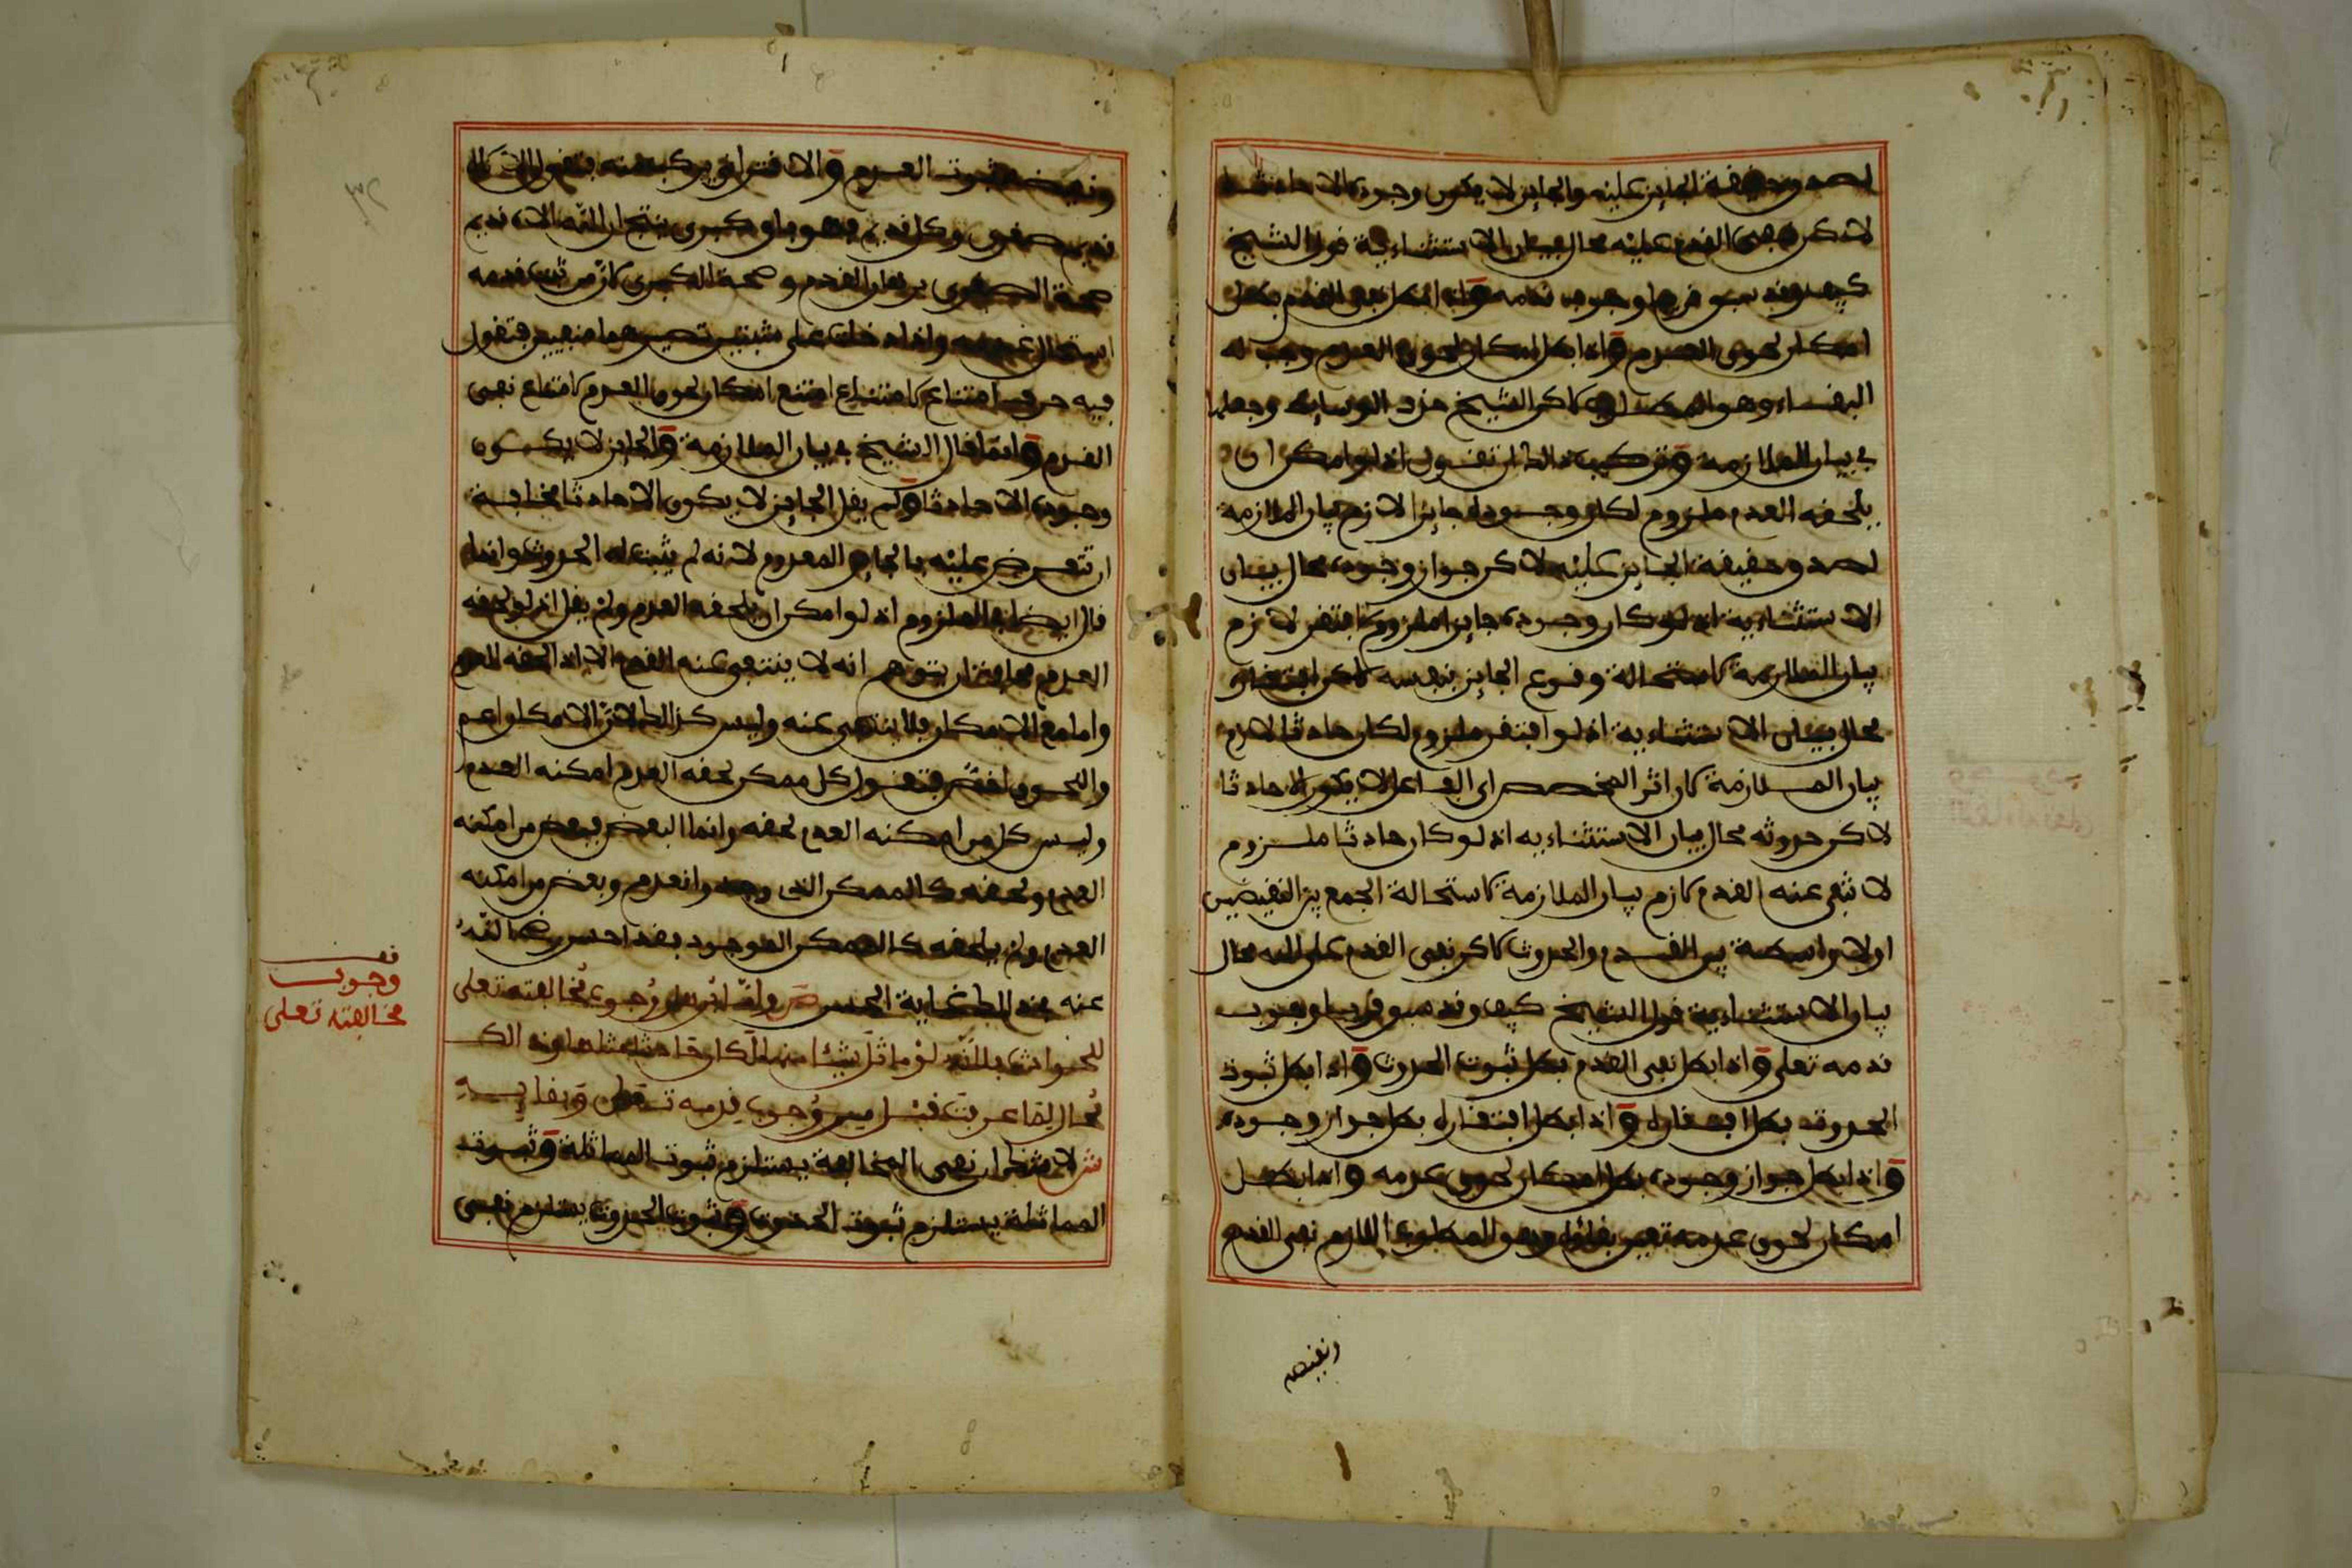 لصدق حقيقة الجايز عليه والجايز لا يكون وجوده الا حادثا
لاكن نفى القدم عليه محال بيان الاستثناءية قول الشيخ
كيف وقد سبق قريبا وجوب قدمه واذا بطل نفى القدم بطل
امكان لحوق العدم واذا بطل امكان لحوق العدم وجب له
البقاء وهو المطلوب لاكن الشيخ حذف الوسايط وجعلها
فى بيان الملازمة وتركيب ذالك ان تقول اذ لو امكن ان
يلحقه العدم ملزوم لكان وجوده جايزا لازم بيان الملازمة
لصدق حقيقة الجايز عليه لاكن جواز وجوده محال بيان
الاستثناءية اذ لو كان وجوده جايزا ملزوم افتقر لازم
بيان الملازمة كاستحالة وقوع الجايز بنفسه لاكن افتقاره
محال بيان الاستثناءية اذ لو افتقر ملزوم لكان حادثا لازم
بيان الملازمة كان اثر المخصص اى الفاعل لا يكون الا حادثا
لاكن حدوثه محال بيان الاستثناءيه اذ لو كان حادثا ملزوم
لانتفى عنه القدم لازم بيان الملازمة كاستحالة الجمع بين النقيضين
اولا واسطة بين القدم والحدوث لاكن نفى القدم على الله محال
بيان الاستثناءية قول الشيخ كيف وقد سبق قريبا وجوب
قدمه تعلى واذا بطل نفى القدم بطل ثبوت الحدوث واذا بطل ثبوت
الحدوث بطل افتقاره واذا بطل افتقاره بطل جواز وجوده
واذا بطل جواز وجوده بطل امكان لحوق عدمه واذا بطل
امكان لحوق عدمه تعين بقاؤه وهو المطلوب اللازم نفى القدم
ونقيض
ونقيضه ثبوت القدم والاقترانى يركب منه فتقول الاله
قديم صغرى وكل قديم فهو باق كبرى ينتج ان الله الاله قديم
صحة الصغرى برهان القدم وصحة الكبرى كل من ثبت قدمه
استحال عدمه واذا دخلت على مثبتين تصيرهما منفيين فتقول
فيه حرف امتناع لامتناع امتنع امكان لحوق العدم لامتناع نفى
القدم وانما قال الشيخ فى بيان الملازمة والجايز لا يكون
وجوده الا حادثا ولم يقل الجايز لا يكون الا حادثا مخافة
ان تعترض عليه بالجايز المعدوم لانه لم يثبت له الحدوث وانما
قال ايضا فى الملزوم اذ لو امكن ان يلحقه العدم ولم يقل اذ لو لحقه
العدم مخافة ان يتوهم انه لا ينتفى عنه القدم الا اذا لحقه العدم
واما مع الامكان فلا ينتفى عنه وليس كذالك لان الامكان اعم
واللحوق اخص فتقول كل ممكن لحقه العدم امكنه العدم
وليس كل من امكنه العدم لحقه وانما البعض فبعض من امكنه
العدم ولحقه كالممكن الذى وجد وانعدم وبعض من امكنه
العدم ولم يلحقه كالممكن الموجود بقد احسن رضى الله
عنه فى ذالك غاية الحسن ص واما برهان وجوب مخالفته تعلى
للحوادث فلانه لو ماثل شيئا منها لكان حادثا مثلها وذالك
محال لما عرفت قبل من وجوب قدمه تعلى وبقايه
ش لاشك ان نفى المخالفة يستلزم ثبوت المماثلة وثبوت
المماثلة يستلزم ثبوت الحدوث وثبوت الحدوث يستلزم نفى
قف
وجوب
مخالفته تعلى